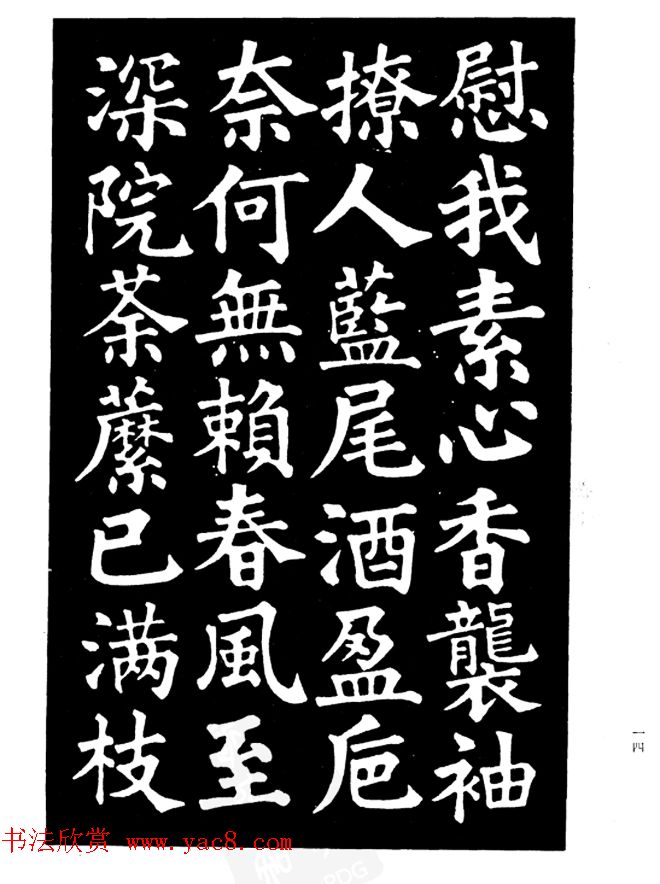 慰我素心香襲袖
撩人藍尾酒盈巵
奈何無賴春風至
深院荼蘼已满枝
一四
书法欣赏 www.yac8.com